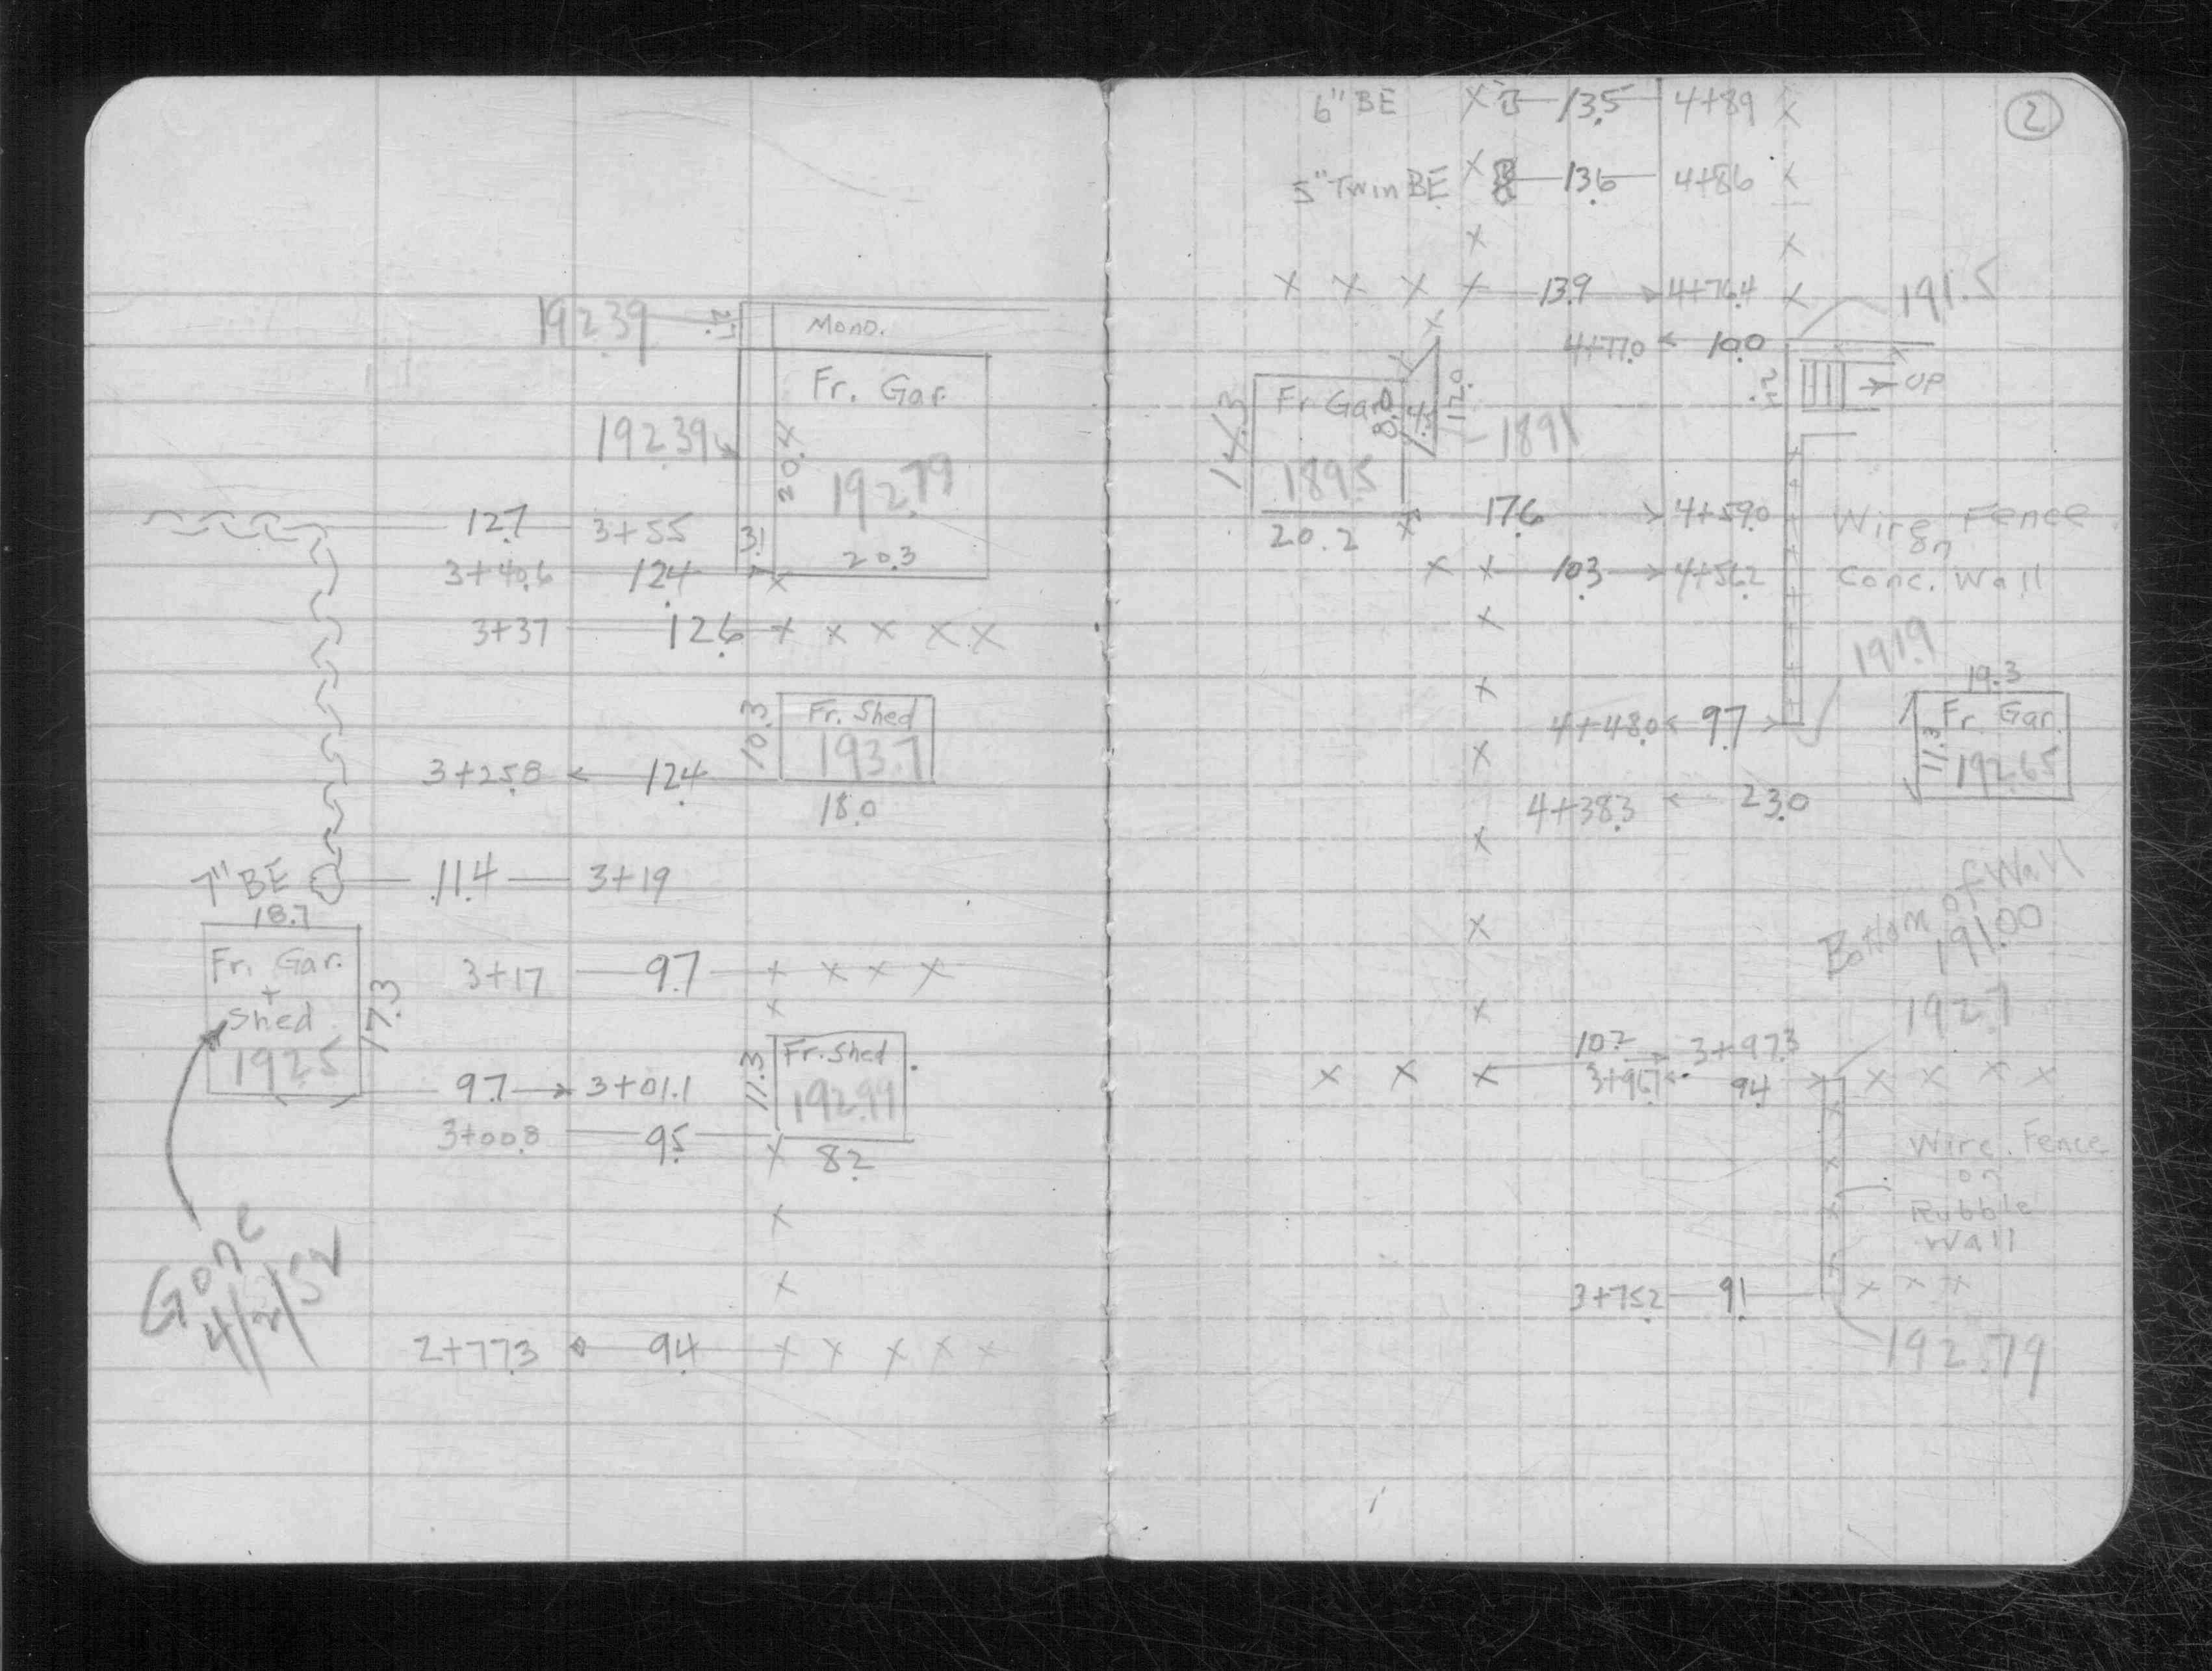 192.39
Mono.
Fr. Gar.
192.39
20.4
192.79
12.7 3+55
3.1
20.3
3+40.6 12.4
3+37 12.6
10.3
Fr. Shed
193.7
3+25.8 12.4
18.0
7" BE 11.4 3+19
18.7
Fr. Gar.
+
Shed
192.5
17.3
3+17 9.7
11.3
Fr. Shed
192.99
9.7 3+01.1
3+00.8 9.5
8.2
Gone
4/2/52
2+77.3 9.4
2
6" BE 13.5 4+89
5" Twin BE 13.6 4+86
13.9 4+76.4
191.5
4+77.0 10.0
UP
14.3
Fr Gar.
8.0
4.5
12.0
189.1
189.5
20.2
17.6 4+59.0
Wire Fence
on
Conc. Wall
10.3 4+56.2
191.9
4+48.0 9.7
19.3
Fr. Gar.
11.3
192.65
4+38.3 23.0
Bottom of Wall
191.00
192.7
10.2 3+97.3
3+96.7 9.4
Wire Fence
on
Rubble
Wall
3+75.2 9.1
192.79